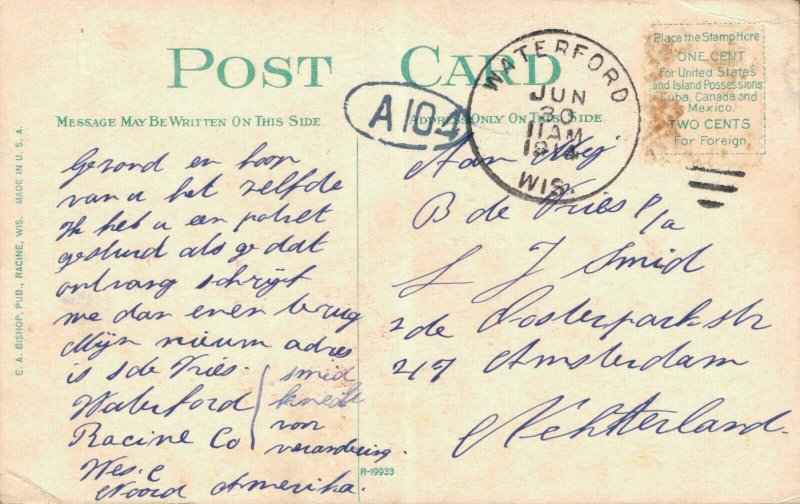 POST CARD
MESSAGE MAY BE WRITTEN ON THIS SIDE.
ADDRESS ONLY ON THIS SIDE.
A 104
WATERFORD
JUN
30
11 AM
1914
WIS.
Place the Stamp Here
ONE CENT
For United States
and Island Possessions
Cuba, Canada and
Mexico.
TWO CENTS
For Foreign.
E. A. BISHOP, PUB., RACINE, WIS. MADE IN U. S. A.
Gezond en hoop
van u het zelfde
Ik heb u een paket
gestuurd als ge dat
ontvang schrijft
me dan even terug
Mijn nieuw adres
is S de Vries.
Waterford
Racine Co
Wes. C
Noord Amerika.
smid
knecht
von
verandering.
R-19933
Aan Mej
B de Vries p/a
L J Smid
2de Oosterparkstr
217 Amsterdam
Nehtterland.